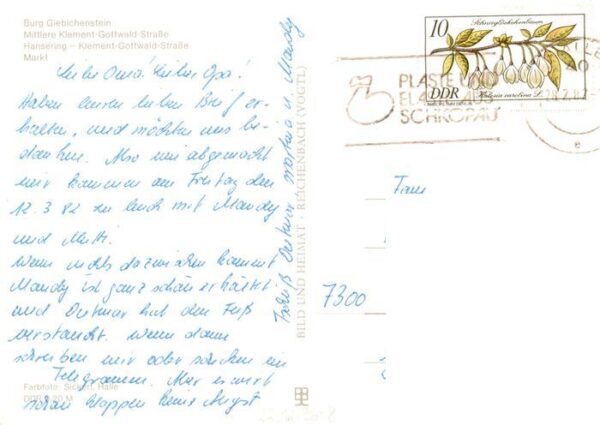 Burg Giebichenstein
Mittlere Klement-Gottwald-Straße
Hansering – Klement-Gottwald-Straße
Markt
Liebe Oma! Lieber Opa!
Haben euren lieben Brief er-
halten, und möchten uns be-
danken. Also wie abgemacht
wir kommen am Freitag den
12.3 82 zu euch mit Mandy
und Mutti.
Wenn nichts dazwischen kommt
Mandy ist ganz schön erkältet
und Dietmar hat den Fuß
verstaucht. Wenn dann
schreiben wir oder schicken ein
Telegramm. Aber es wird
schon klappen keine Angst
Gruß Dietmar Martina u. Mandy
Farbfoto: Sickert, Halle
DDR 0,20 M
BILD UND HEIMAT · REICHENBACH (VOGTL)
10
Schneeglöckchenbaum
DDR
Halesia carolina L.
PLASTE UND
ELASTE AUS
SCHKOPAU
Fam
7300